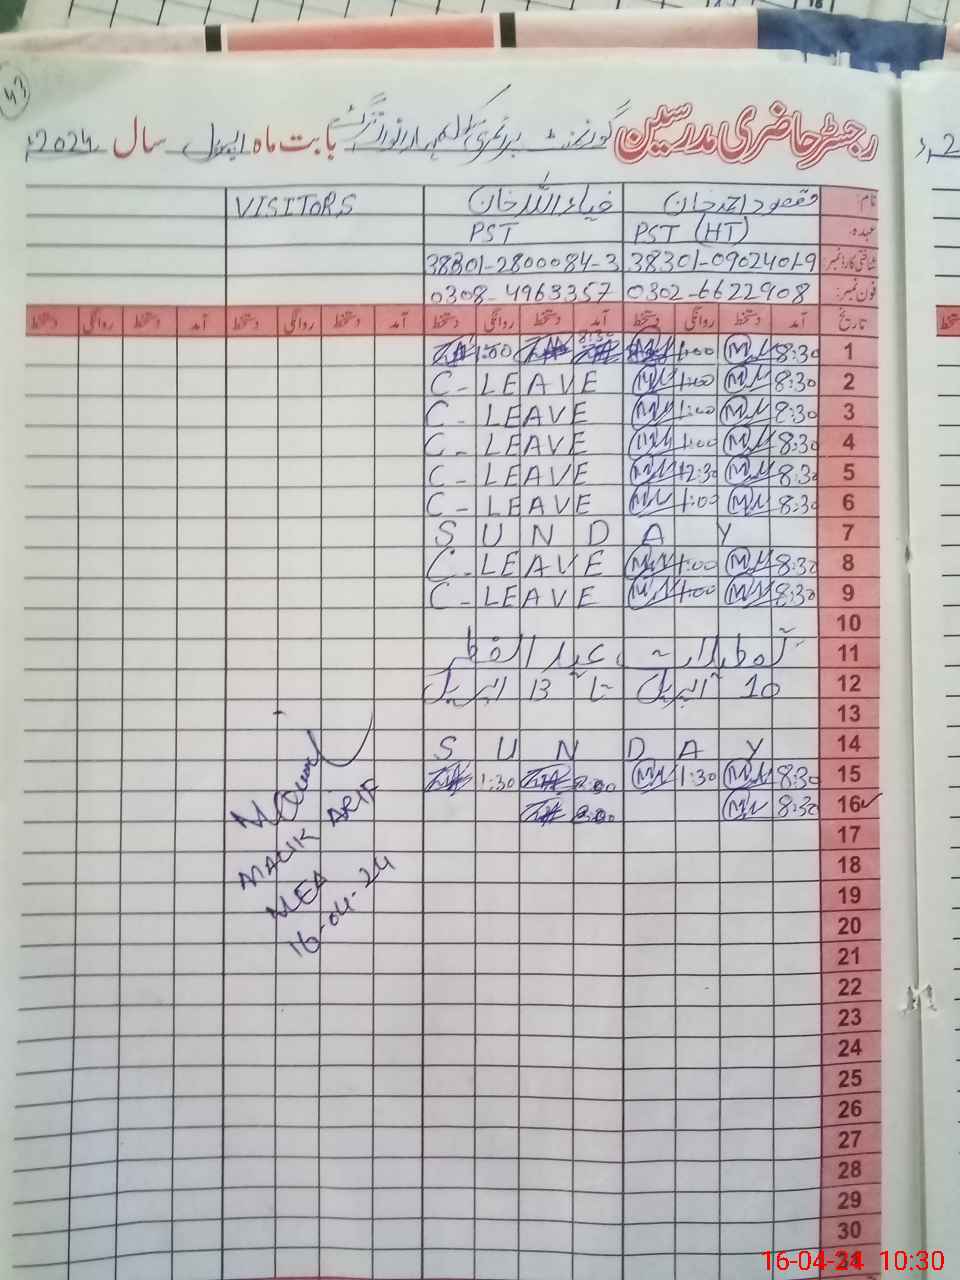 43
رجسٹر حاضری مدرسین گورنمنٹ پرائمری بابت ماہ اپریل سال 2024ء
نام: مقصود احمد خان ضیاء اللہ خان VISITORS
عہدہ: PST (HT) PST
شناختی کارڈ نمبر: 38301-0902401-9 38301-2800084-3
فون نمبر: 0302-6622908 0308-4963357
تاریخ آمد دستخط روانگی دستخط آمد دستخط روانگی دستخط آمد دستخط روانگی دستخط آمد دستخط روانگی دستخط
1 8:30 1:00 8:30 1:00
2 8:30 1:00 C-LEAVE
3 8:30 1:00 C-LEAVE
4 8:30 1:00 C-LEAVE
5 8:30 12:30 C-LEAVE
6 8:30 1:00 C-LEAVE
7 SUNDAY
8 8:30 1:00 C-LEAVE
9 8:30 1:00 C-LEAVE
10
11 عید الفطر
12 10 اپریل تا 13 اپریل
13
14 SUNDAY
15 8:30 1:30 8:00 1:30
16 8:30 8:00
MALIK ARIF
MEA
16-04-24
17
18
19
20
21
22
23
24
25
26
27
28
29
30
31
16-04-24 10:30